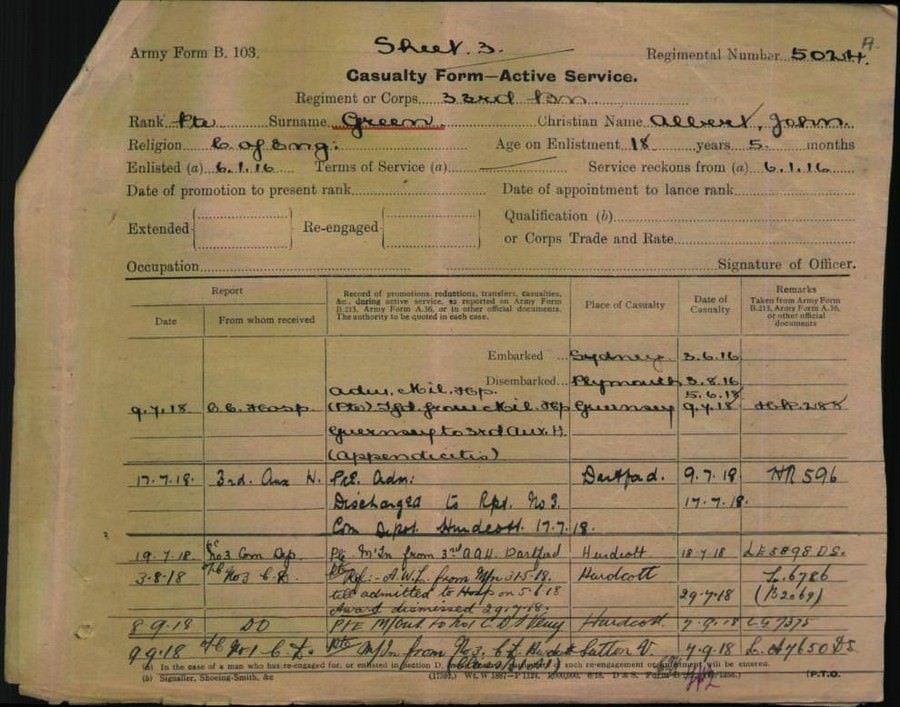 Sheet. 3.
Army Form B. 103.
Regimental Number 5024.
Casualty Form—Active Service.
Regiment or Corps 33rd Bn.
Rank Pte Surname Green Christian Name Albert, John.
Religion C. of Eng: Age on Enlistment 18 years 5 months
Enlisted (a) 6.1.16 Terms of Service (a) Service reckons from (a) 6.1.16
Date of promotion to present rank Date of appointment to lance rank
Extended Re-engaged Qualification (b)
or Corps Trade and Rate
Occupation Signature of Officer.
Report
Date From whom received
Record of promotions, reductions, transfers, casualties, &c., during active service, as reported on Army Form B.213, Army Form A.36, or in other official documents. The authority to be quoted in each case.
Place of Casualty
Date of Casualty
Remarks
Taken from Army Form B.213, Army Form A.36, or other official documents
Embarked Sydney 3.6.16
Disembarked Plymouth 3.8.16
Adm. Mil. Hp. 5.6.18
9.7.18 O.C. Hosp. (Pte) Tfd. from Mil. Hp Guernsey 9.7.18 288
Guernsey to 3rd Aux. H.
(Appendicitis)
17.7.18. 3rd. Aux H. Pte. Adm: Dartford. 9.7.18. 596
Discharged to No 3. 17.7.18.
Com Depot. Hurdcott. 17.7.18.
19.7.18 No 3 Com Dep. M'In from 3rd A.A.H. Dartford Hurdcott 18.7.18 LE5898 DS.
3.8.18 No 3 C.D. A.W.L. from 31.5.18. Hurdcott L.6786
till admitted to Hosp on 5.6.18 29.7.18 (B2069)
Award dismissed 29.7.18.
8.9.18 DO PTE M/Out to No 1 C.D. Hurdcott 7.9.18
9.9.18 No 1 C.D. Pte M/In from No 3. C.D. Sutton V. 7.9.18
(a) In the case of a man who has re-engaged for, or enlisted in section D, such re-engagement or enlistment will be entered.
(b) Signaller, Shoeing-Smith, &c
P.T.O.